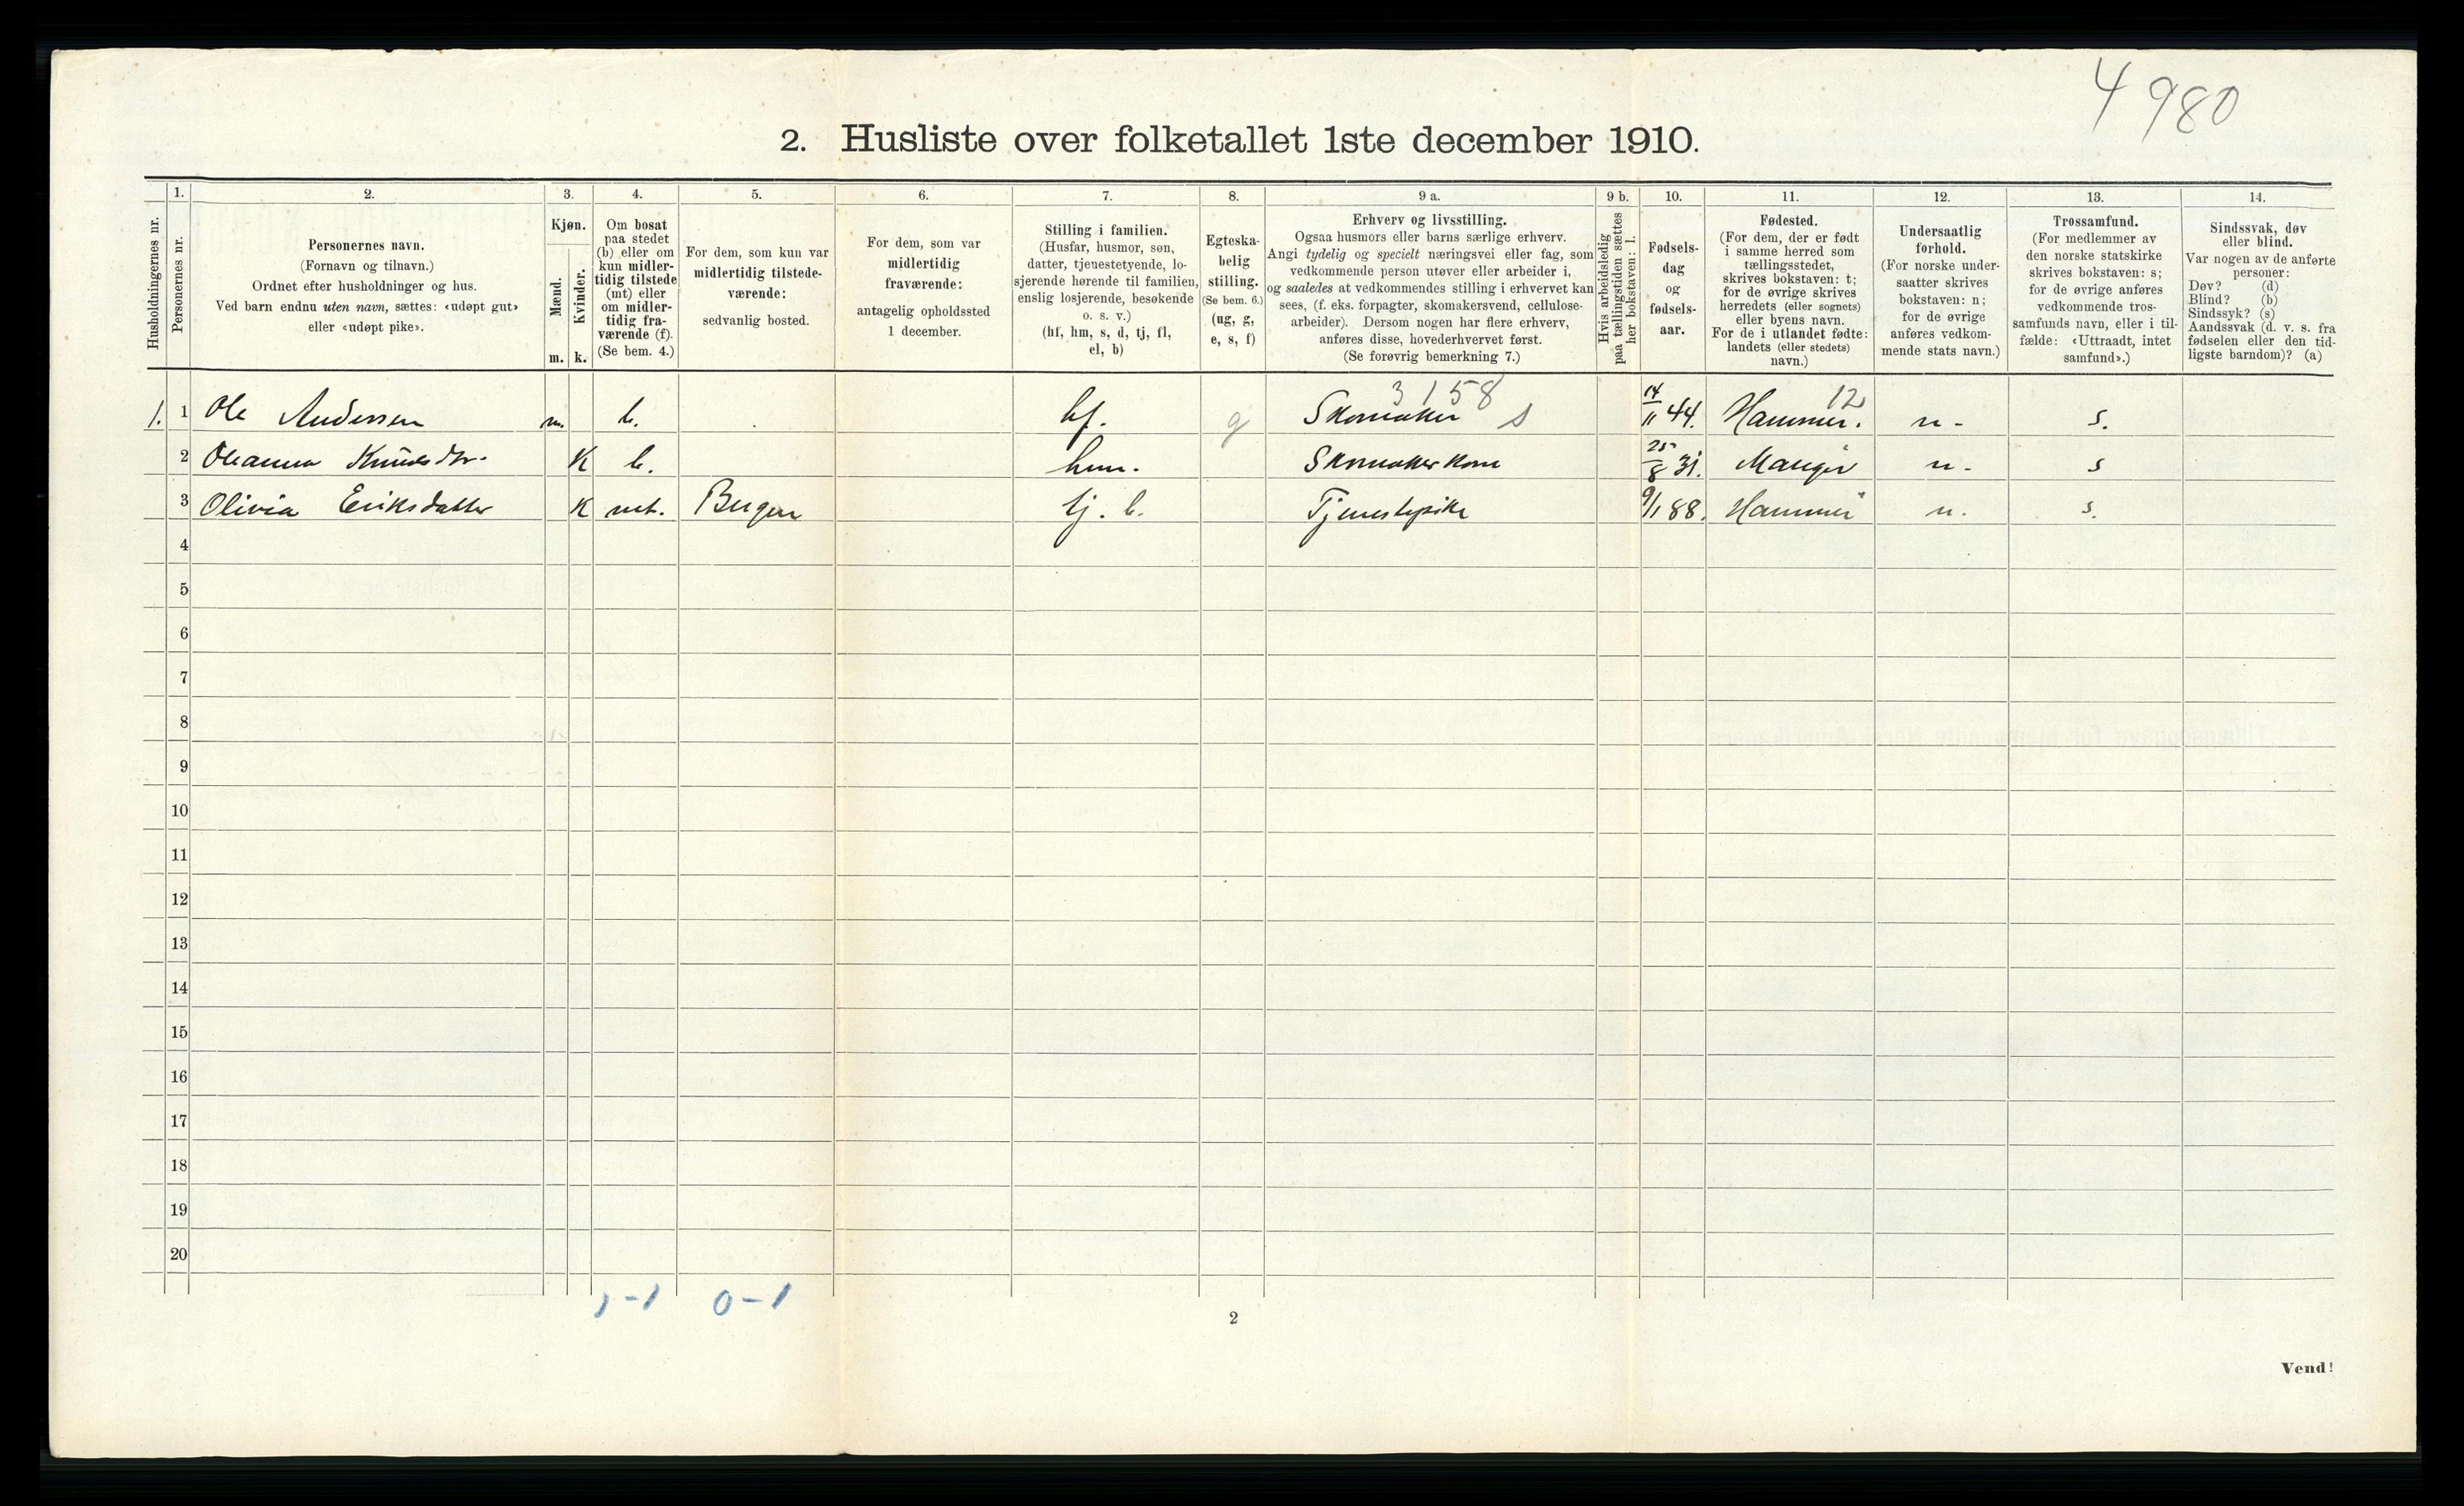 4 980
2. Husliste over folketallet 1ste december 1910.
Husholdningernes nr.
1. 2. 3. 4. 5. 6. 7. 8. 9 a. 9 b. 10. 11. 12. 13. 14.
Personernes nr.
Personernes navn.
(Fornavn og tilnavn.)
Ordnet efter husholdninger og hus.
Ved barn endnu uten navn, sættes: «udøpt gut»
eller «udøpt pike».
Kjøn.
Mænd.
Kvinder.
m. k.
Om bosat
paa stedet
(b) eller om
kun midler-
tidig tilstede
(mt) eller
om midler-
tidig fra-
værende (f).
(Se bem. 4.)
For dem, som kun var
midlertidig tilstede-
værende:
sedvanlig bosted.
For dem, som var
midlertidig
fraværende:
antagelig opholdssted
1 december.
Stilling i familien.
(Husfar, husmor, søn,
datter, tjenestetyende, lo-
sjerende hørende til familien,
enslig losjerende, besøkende
o. s. v.)
(hf, hm, s, d, tj, fl,
el, b)
Egteska-
belig
stilling.
(Se bem. 6.)
(ug, g,
e, s, f)
Erhverv og livsstilling.
Ogsaa husmors eller barns særlige erhverv.
Angi tydelig og specielt næringsvei eller fag, som
vedkommende person utøver eller arbeider i,
og saaledes at vedkommendes stilling i erhvervet kan
sees, (f. eks. forpagter, skomakersvend, cellulose-
arbeider). Dersom nogen har flere erhverv,
anføres disse, hovederhvervet først.
(Se forøvrig bemerkning 7.)
Hvis arbeidsledig
paa tællingstiden sættes
her bokstaven: l.
Fødsels-
dag
og
fødsels-
aar.
Fødested.
(For dem, der er født
i samme herred som
tællingsstedet,
skrives bokstaven: t;
for de øvrige skrives
herredets (eller sognets)
eller byens navn.
For de i utlandet fødte:
landets (eller stedets)
navn.)
Undersaatlig
forhold.
(For norske under-
saatter skrives
bokstaven: n;
for de øvrige
anføres vedkom-
mende stats navn.)
Trossamfund.
(For medlemmer av
den norske statskirke
skrives bokstaven: s;
for de øvrige anføres
vedkommende tros-
samfunds navn, eller i til-
fælde: «Uttraadt, intet
samfund».)
Sindssvak, døv
eller blind.
Var nogen av de anførte
personer:
Døv? (d)
Blind? (b)
Sindssyk? (s)
Aandssvak (d. v. s. fra
fødselen eller den tid-
ligste barndom)? (a)
3158 12
1. 1 Ole Andersen m. b. hf. g Skomaker s 14/11 44. Hammer. n - s.
2 Oleanna Knudsdtr. K b. hm. Skomakerkone 25/8 31. Manger n - s
3 Olivia Eriksdatter K mt. Bergen tj. b. Tjenestepike 9/1 88. Hammer n. s.
4
5
6
7
8
9
10
11
12
13
14
15
16
17
18
19
20
1-1 0-1
2
Vend!